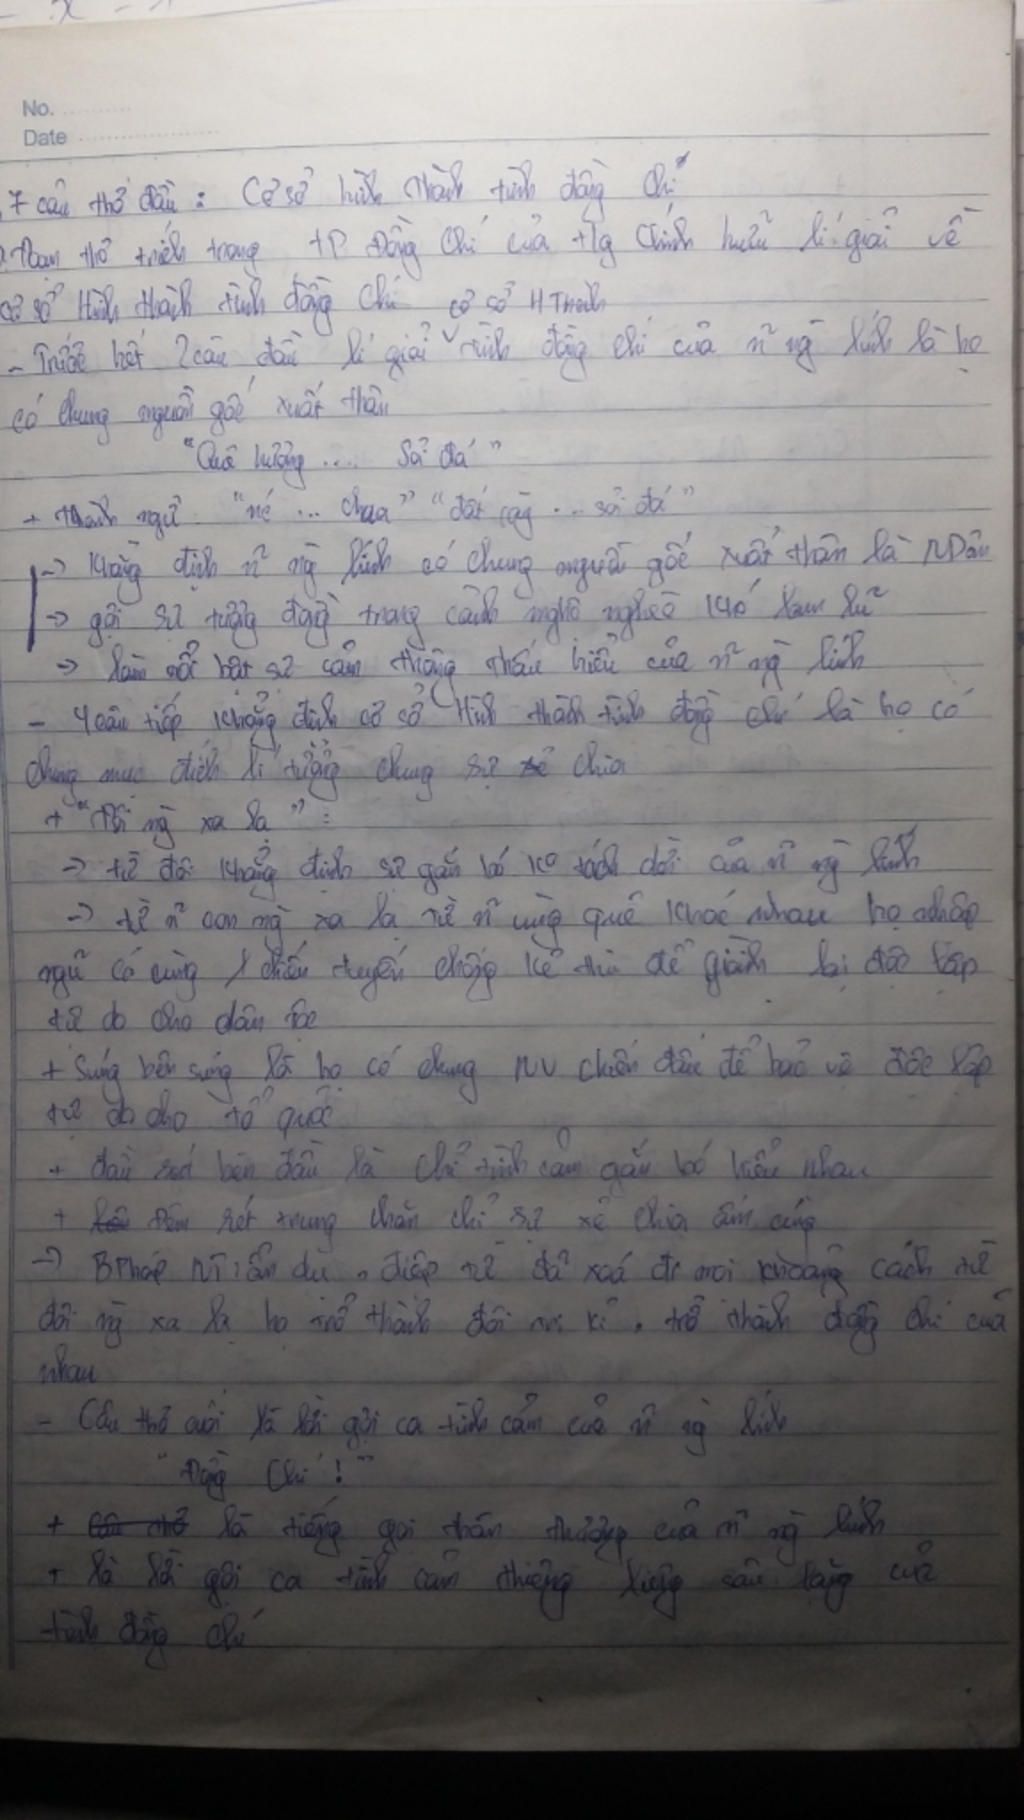 No.
Date
7 câu thơ đầu : Cơ sở hình thành tình đồng chí
Đoạn thơ trích trong tP Đồng Chí của t/g Chính hữu lí giải về
cơ sở Hình thành tình đồng chí cơ sở H Thành
- Trước hết 2 câu đầu lí giải tình đồng chí của n~ ng` lính là họ
có chung nguồn gốc xuất thân
"Quê hương .... Sỏi đá"
+ thành ngữ "nc ... chua" "đất cày ... sỏi đá"
-> Khẳng định n~ ng` lính có chung nguồn gốc xuất thân là NDân
-> gợi sự tương đồng trong cảnh nghèo khó lam lũ
-> làm nổi bật sự cảm thông thấu hiểu của n~ ng` lính
- 4 câu tiếp khẳng định cơ sở Hình thành tình đồng chí là họ có
chung mục đích lí tưởng chung sự sẻ chia
+ "Đôi ng` xa lạ" :
-> từ đôi khẳng định sự gắn bó ko tách dời của n~ ng` lính
-> từ n~ con ng` xa lạ từ n~ vùng quê khác nhau họ nhập
ngũ có cùng 1 chiến tuyến chống kẻ thù để giành lại độc lập
tự do cho dân tộc
+ Súng bên súng là họ có chung NV chiến đấu để bảo vệ độc lập
tự do cho tổ quốc
+ đầu sát bên đầu là chỉ tình cảm gắn bó hiểu nhau
+ Đêm rét trung chăn chỉ sự sẻ chia ấm cúng
-> BPháp NT : ẩn dụ , điệp từ đã xoá đi mọi khoảng cách từ
đôi ng` xa lạ họ trở thành đôi tri kỉ , trở thành đồng chí của
nhau
- Câu thơ cuối là lời gợi ca tình cảm của n~ ng` lính
"Đồng Chí !"
+ Câu thơ là tiếng gọi thân thương của n~ ng` lính
+ là lời gợi ca tình cảm thiêng liêng sâu lặng của
tình đồng chí